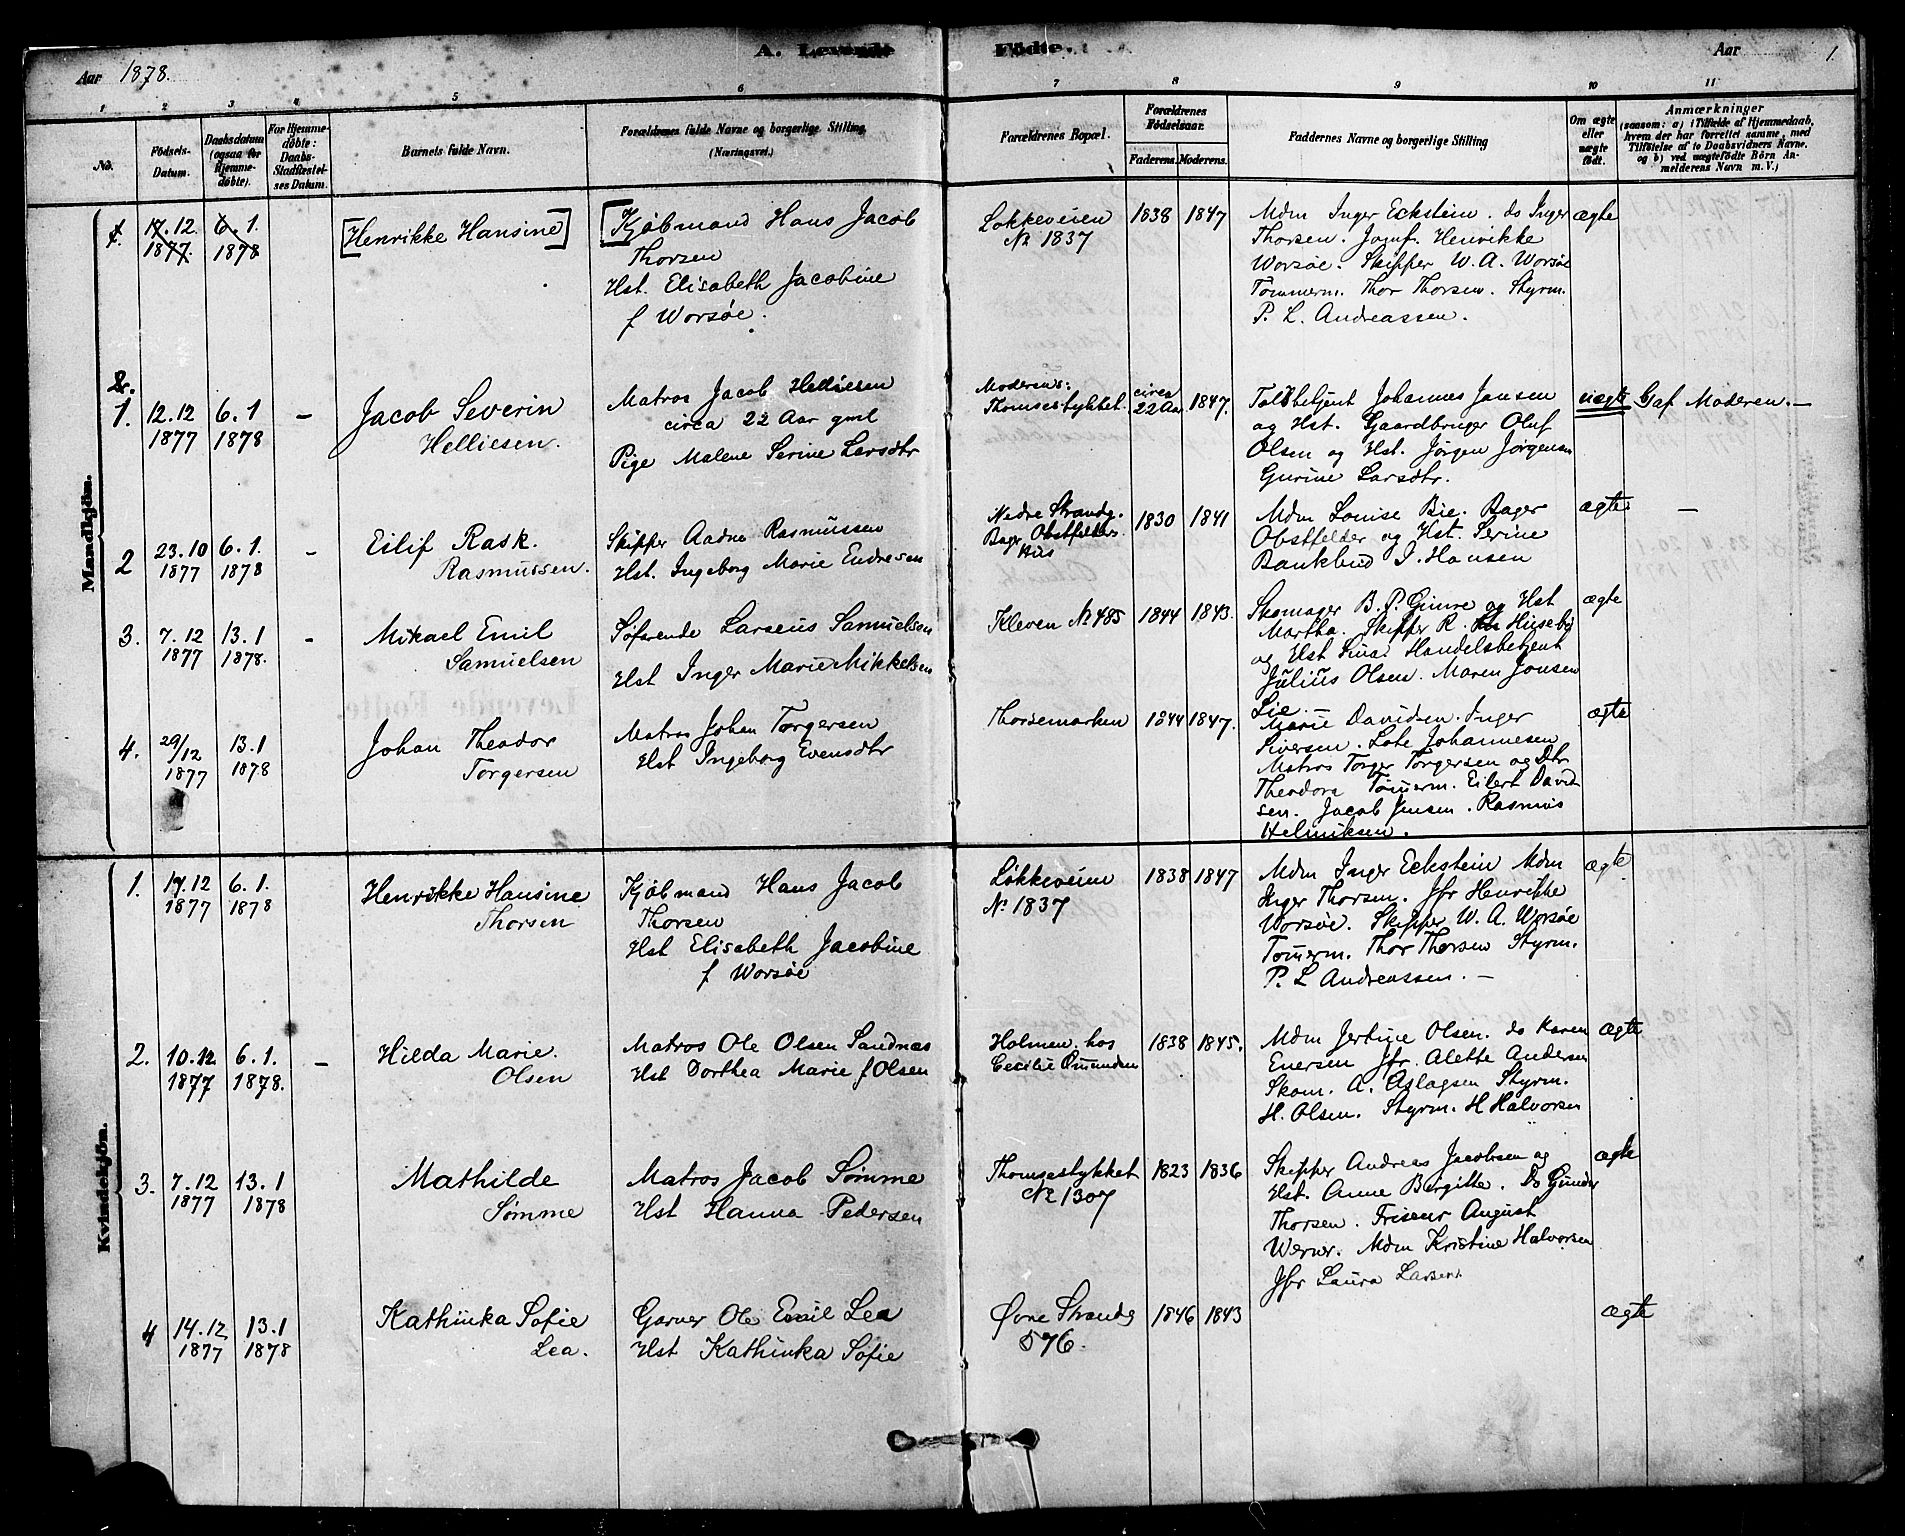 A. Levende Födte.
Aar 1878.
Aar 1
1 2 3 4 5 6 7 8 9 10 11
No.
Födsels-Datum.
Daabsdatum (ogsaa for Hjemmedöbte).
For Hjemmedöbte: Daabs-Stadfæstelses Datum.
Barnets fulde Navn.
Forældrenes fulde Navne og borgerlige Stilling
(Næringsvei.)
Forældrenes Bopæl.
Forældrenes Födselsaar.
Faderens. Moderens.
Faddernes Navne og borgerlige Stilling
Om ægte eller uægte födt.
Anmærkninger
(saasom: a) i Tilfælde af Hjemmedaab, hvem der har forrettet samme, med Tilföielse af to Daabsvidners Navne, og b) ved uægtefödte Börn Anmelderens Navn m. V.)
Mandkjön.
1.
17.12 1877
6.1. 1878
[Henrikke Hansine]
[Kjøbmand Hans Jacob
Thorsen
Hst. Elisabeth Jacobine
f Worsøe.
Løkkeveien
No 1837
1838
1847
Mdm Inger Eckstein. do Inger
Thorsen. Jomf. Henrikke
Worsøe. Skipper W. A. Worsøe
Tømmerm. Thor Thorsen. Styrm.
P. L. Andreassen.
ægte
1.
12.12 1877
6.1 1878
–
Jacob Severin
Helliesen.
Matros Jacob Helliesen
circa 22 Aar gml
Pige Malene Serine Larsdtr
Moderens:
Thomsestykket.
circa 22 Aar
1847.
Toldbetjent Johannes Jansen
og Hst. Gaardbruger Oluf
Olsen og Hst. Jørgen Jørgensen
Gurine Larsdtr.
uægte
G af Moderen. –
2
23.10 1877
6.1. 1878
–
Eilif Rask.
Rasmussen.
Skipper Aadne Rasmussen
Hst. Ingeborg Marie Endresen
Nedre Strandg.
Bager Obstfelders
Hus
1830
1841
Mdm Louise Bie. Bager
Obstfelder og Hst. Serine
Bankbud J. Hansen
ægte
–
3.
7.12 1877
13.1 1878.
–
Mikael Emil
Samuelsen
Søfarende Larseus Samuelsen
Hst Inger Marie Mikkelsen
Kleven No 485
1844
1843.
Skomager B. P. Gimre og Hst
Martha. Skipper R. Huseby
og Hst Sina. Handelsbetjent
Julius Olsen. Maren Jonsen
Lie.
ægte
4.
29/12 1877
13.1 1878
Johan Theodor
Torgersen
Matros Johan Torgersen
Hst Ingeborg Evensdtr
Thorsemarken
1844
1847.
Marie Davidsen. Inger
Siversen. Lote Johannesen
Matros Torger Torgersen og Dtr
Theodora Tømerm. Eilert David
sen. Jacob Jensen. Rasmus
Helmiksen.
ægte
Kvindekjön.
1.
17.12 1877
6.1. 1878
Henrikke Hansine
Thorsen
Kjøbmand Hans Jacob
Thorsen
Hst Elisabeth Jacobine
f Worsøe
Løkkeveien
No 1837
1838
1847
Mdm Inger Eckstein Mdm
Inger Thorsen. Jfr Henrikke
Worsøe. Skipper W. A. Worsøe
Tømerm. Thor Thorsen Styrm.
P. L Andreassen. –
ægte
2.
10.12 1877
6.1. 1878.
–
Hilda Marie.
Olsen
Matros Ole Olsen Sandnæs
Hst Dorthea Marie f Olsen
Holmen. hos
Cecilie Omundsen
1838
1845.
Mdm Jertine Olsen. do Karen
Enersen Jfr. Alette Andersen
Skom. A. Aslagsen Styrm.
H. Olsen. Styrm. H Halvorsen
ægte
3.
7.12 1877
13.1 1878
Mathilde
Sømme
Matros Jacob Sømme
Hst Hanna Pedersen
Thomsestykket
No 1307
1823
1836
Skipper Andreas Jacobsen og
Hst. Anne Bergitte. Do Gunder
Thorsen. Friseur August
Werner. Mdm Kristine Halvorsen
Jfr Laura Larsen.
ægte
4
14.12 1877
13.1 1878
Kathinka Sofie
Lea.
Garver Ole Emil Lea
Hst Kathinka Sofie
Øvre Strandg
576.
1846
1843
ægte